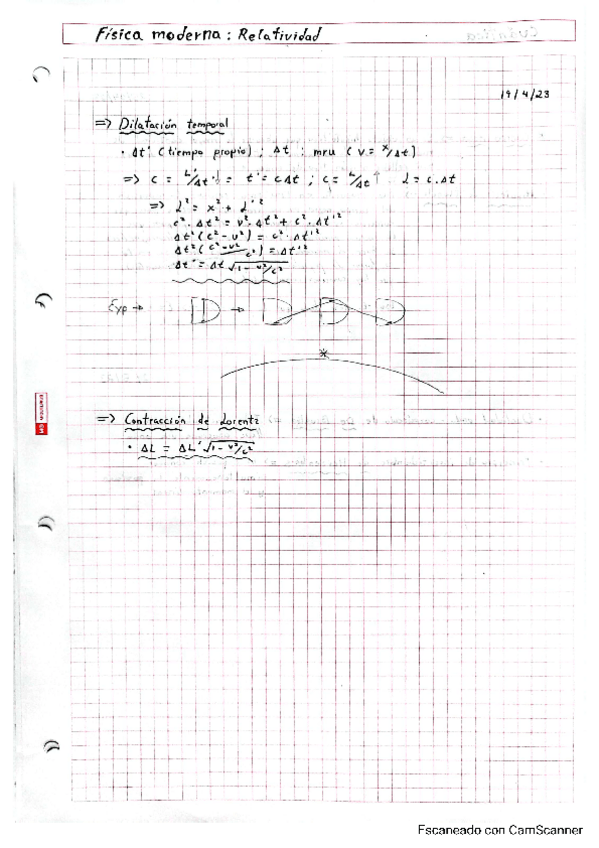 Física moderna: Relatividad
19/4/23
=> Dilatación temporal
· Δt' (tiempo propio) ; Δt : mru (v = x/Δt)
=> c = L'/Δt' = t' = cΔt ; c = L/Δt ↑ L = c.Δt
=> L² = x² + L'²
c². Δt² = v². Δt² + c². Δt'²
Δt² (c² - v²) = c². Δt'²
Δt² (c² - v²/c²) = Δt'²
Δt' = Δt √1 - v²/c²
Exp →
=> Contracción de Lorentz
· ΔL = ΔL' √1 - v²/c²
Escaneado con CamScanner